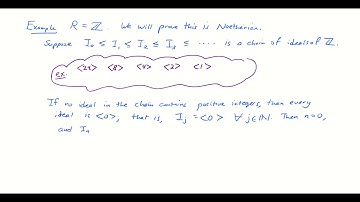 Example R = ℤ. We will prove this is Noetherian.
Suppose I₀ ≤ I₁ ≤ I₂ ≤ I₃ ≤ ..... is a chain of ideals of ℤ.
ex. <24> <8> <4> <2> <1>
If no ideal in the chain contains positive integers, then every
ideal is <0>, that is, Iⱼ = <0> ∀ j∈ℕ. Then n=0,
and Iₙ